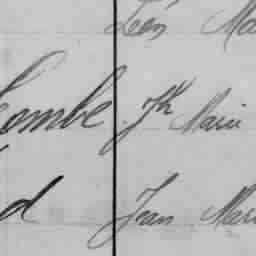 Léon Ma
Combe Jh Marie
d Jean Mari